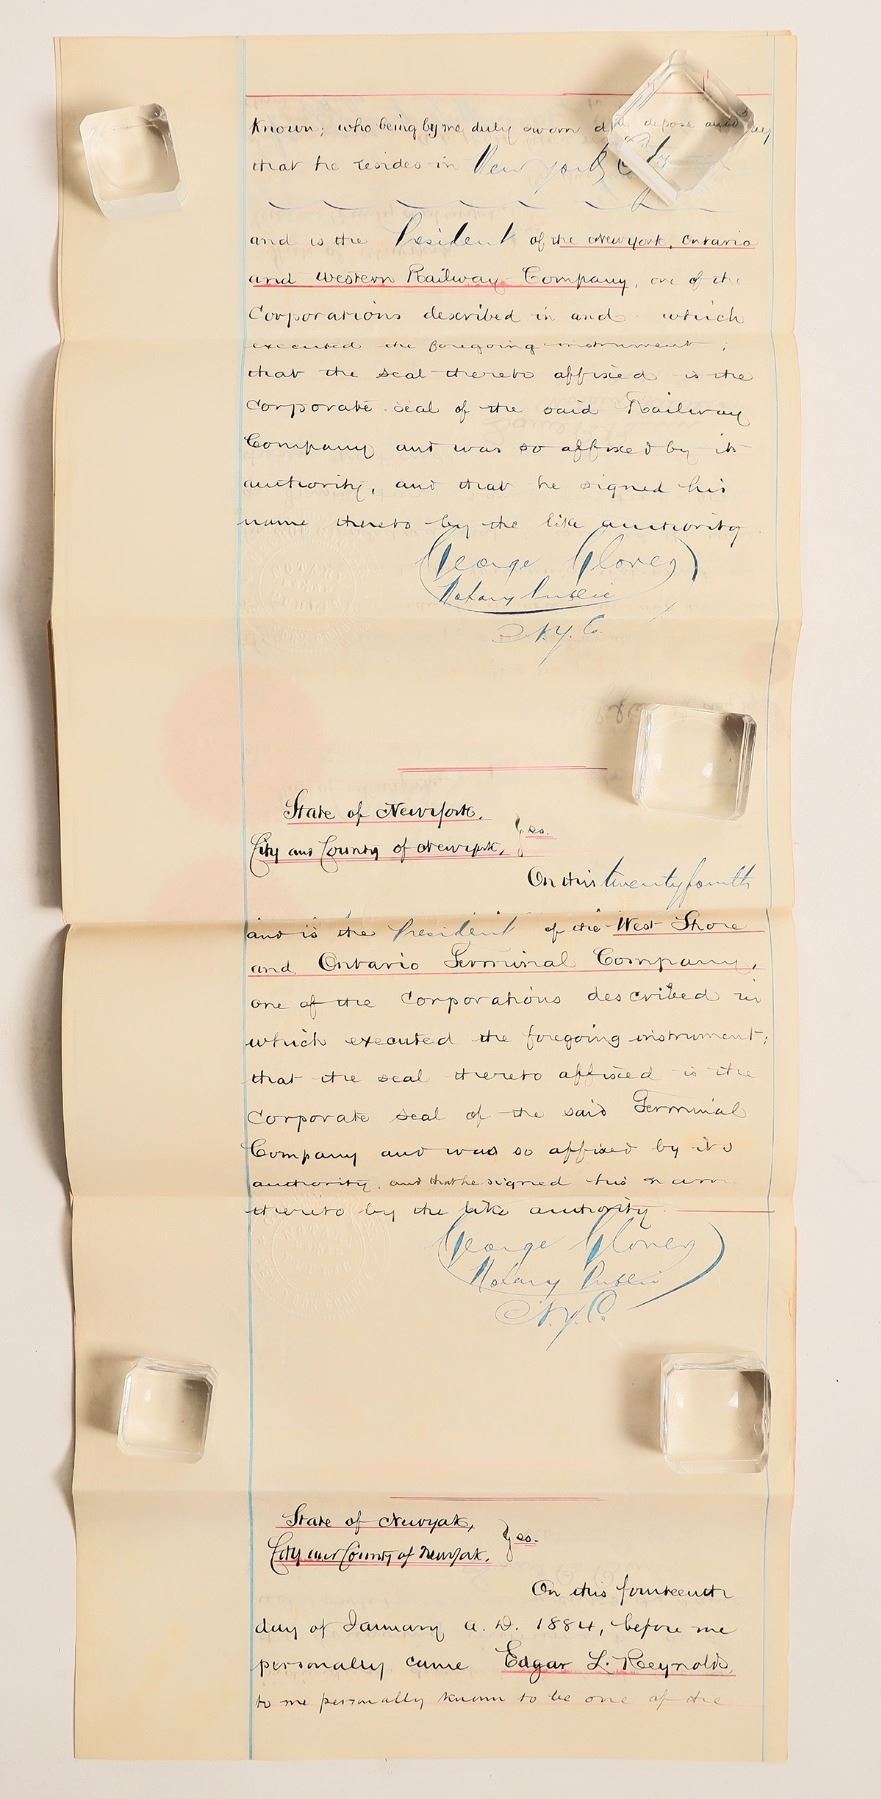 known; who being by me duly sworn did depose and say
that he resides in New York City
and is the President of the New York, Ontario
and Western Railway Company, one of the
Corporations described in and which
executed the foregoing instrument;
that the seal thereto affixed is the
Corporate seal of the said Railway
Company and was so affixed by its
authority, and that he signed his
name thereto by the like authority
George Glover
Notary Public
N.Y.C.
State of New York,
City and County of New York, } ss.
On this twenty fourth
and is the President of the West Shore
and Ontario Terminal Company,
one of the Corporations described in
which executed the foregoing instrument;
that the seal thereto affixed is the
Corporate seal of the said Terminal
Company and was so affixed by its
authority, and that he signed his name
thereto by the like authority
George Glover
Notary Public
N.Y.C.
State of New York,
City and County of New York. } ss.
On this fourteenth
day of January A. D. 1884, before me
personally came Edgar L. Reynolds,
to me personally known to be one of the